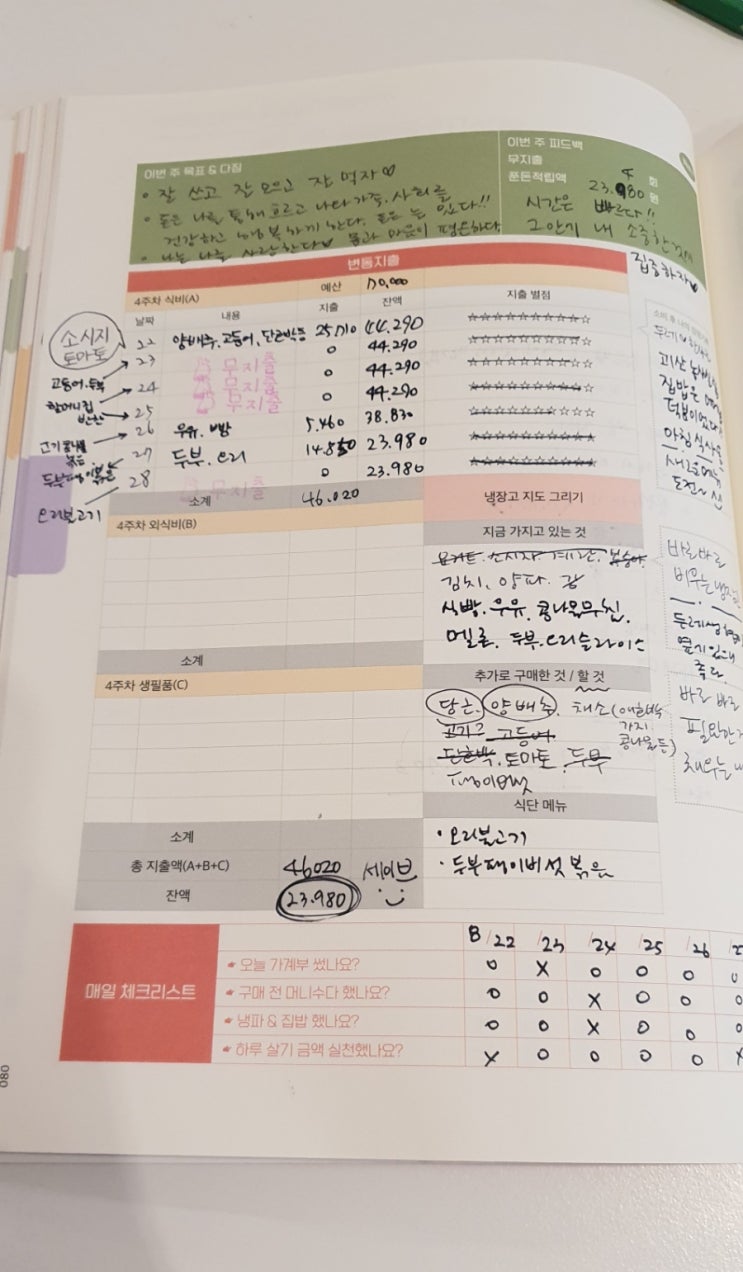 이번 주 목표 & 다짐
• 잘 쓰고 잘 모으고 잘 먹자♡
• 돈은 나를 통해 흐르고 나와 가족, 사회를
건강하고 행복하게 한다. 돈은 늘 있다!!
• 나는 나를 사랑한다♡ 몸과 마음이 평온하다.
이번 주 피드백
무지출 4 회
푼돈적립액 23.980 원
시간은 빠르다!!
그 안에 내 소중한
집중하자♡
변동지출
4주차 식비(A) 예산 70,000
날짜 내용 지출 잔액 지출 별점
22 양배추, 고등어, 단호박등 25.710 44.290 ☆☆☆☆☆☆☆☆☆☆
23 무지출 0 44.290 ☆☆☆☆☆☆☆☆☆☆
24 무지출 0 44.290 ☆☆☆☆☆☆☆☆☆☆
25 무지출 0 44.290 ☆☆☆☆☆☆☆☆☆☆
26 우유, 빵 5.460 38.830 ☆☆☆☆☆☆☆☆☆☆
27 두부, 오리 14.850 23.980 ☆☆☆☆☆☆☆☆☆☆
28 무지출 0 23.980 ☆☆☆☆☆☆☆☆☆☆
소계 46.020
소시지
토마토
고등어, 두부
할머니집
반찬
고기콩나물
볶음
두부팽이볶음
오리불고기
4주차 외식비(B)
소계
4주차 생필품(C)
소계
총 지출액(A+B+C) 46020 세이브
잔액 23.980
냉장고 지도 그리기
지금 가지고 있는 것
요거트, 소시지, 계란, 복숭아
김치, 양파, 감
식빵, 우유, 콩나물무침,
메론, 두부, 오리슬라이스
추가로 구매한 것 / 할 것
당근, 양배추, 채소(애호박
가지
콩나물 등)
고등어
단호박, 토마토, 두부
팽이버섯
식단 메뉴
• 오리불고기
• 두부팽이버섯 볶음
집밥은
아침 식사
새로운
도전
바로바로
비우는
바로 바로
필요한
채우는
매일 체크리스트
8/22 /23 /24 /25 /26
☛ 오늘 가계부 썼나요? O X O O O O
☛ 구매 전 머니수다 했나요? O O X O O O
☛ 냉파 & 집밥 했나요? O O X O O O
☛ 하루 살기 금액 실천했나요? X O O O O X
080